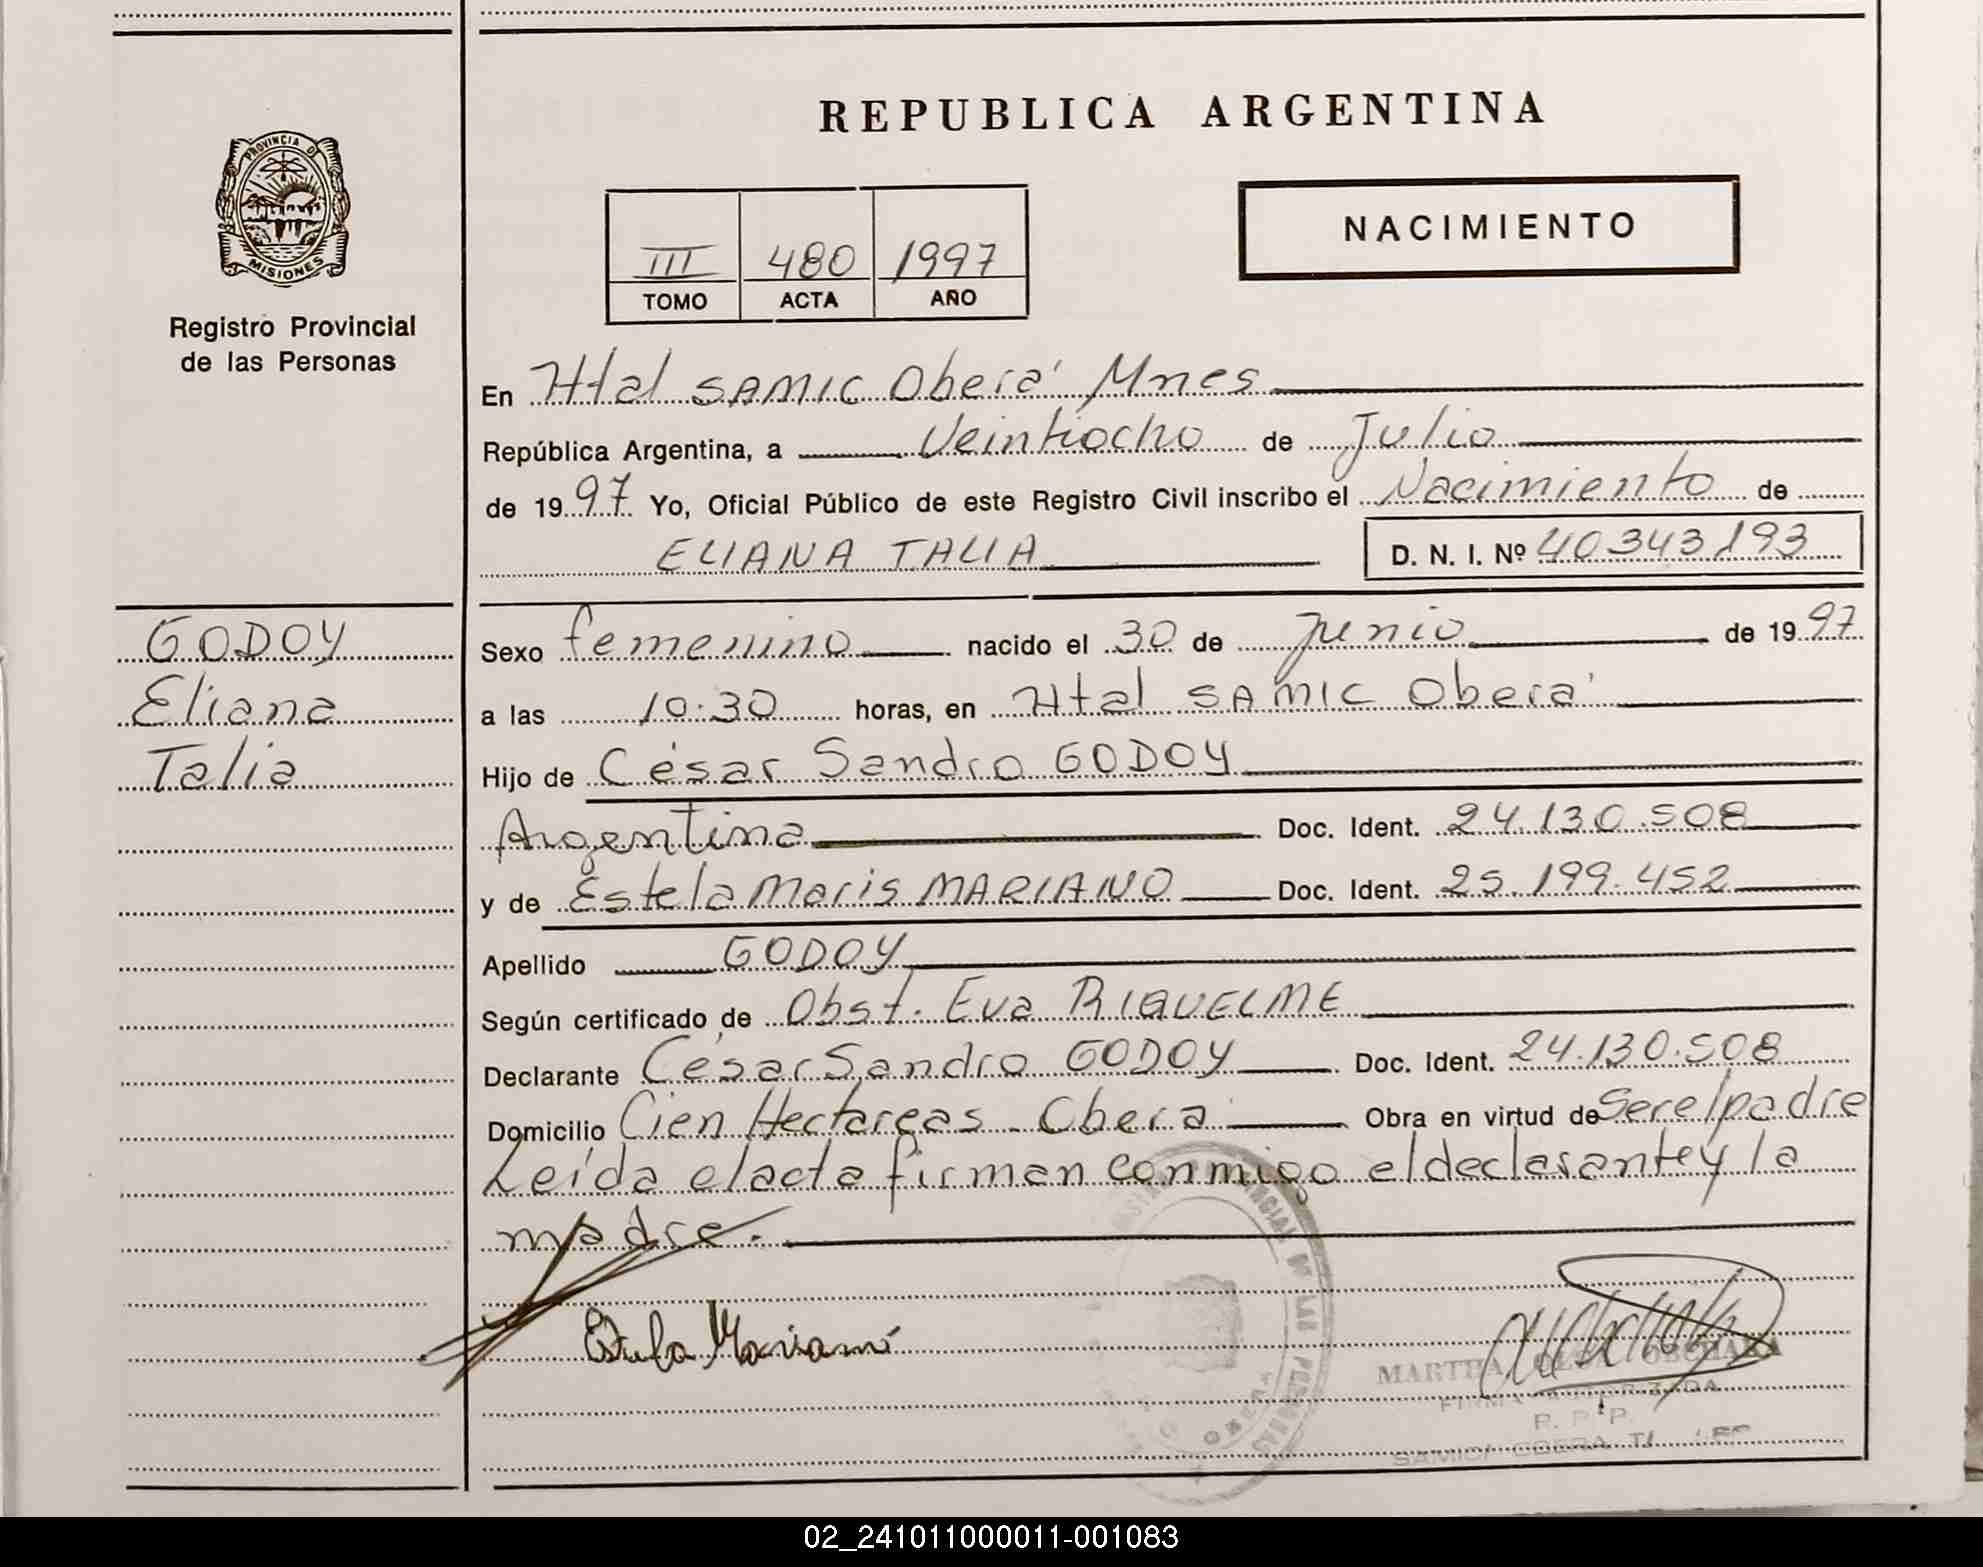 REPUBLICA ARGENTINA
PROVINCIA DE
MISIONES
Registro Provincial
de las Personas
NACIMIENTO
III 480 1997
TOMO ACTA AÑO
En Htal SAMIC Oberá Mnes
República Argentina, a Veintiocho de Julio
de 1997 Yo, Oficial Público de este Registro Civil inscribo el Nacimiento de
ELIANA TALIA D. N. I. Nº 40343193
GODOY
Eliana
Talia
Sexo femenino nacido el 30 de junio de 1997
a las 10:30 horas, en Htal SAMIC Oberá
Hijo de César Sandro GODOY
Argentina Doc. Ident. 24.130.508
y de Estela Maris MARIANO Doc. Ident. 25.199.452
Apellido GODOY
Según certificado de Obst. Eva RIQUELME
Declarante César Sandro GODOY Doc. Ident. 24.130.508
Domicilio Cien Hectareas - Oberá Obra en virtud de Ser el padre
Leída el acta firman conmigo el declarante y la
madre.
Estela Mariano
MARTHA
R. P. P.
02_241011000011-001083